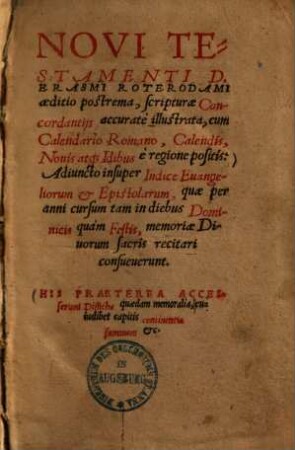 NOVI TE-
STAMENTI D.
ERASMI ROTERODAMI
æditio postrema, scripturæ Con
cordantijs accurate illustrata, cum
Calendario Romano, Calendis,
Nonis atq; Idibus è regione positis:
Adiuncto insuper Indice Euange-
liorum & Epistolarum, quæ per
anni cursum tam in diebus Domi-
nicis quàm Festis, memoriæ Di-
uorum sacris recitari
consueuerunt.
HIS PRAETEREA ACCES-
serunt Disticha quædam memoralia, cu
iuslibet capitis continentia
summam &c.
IN AUGSBURG